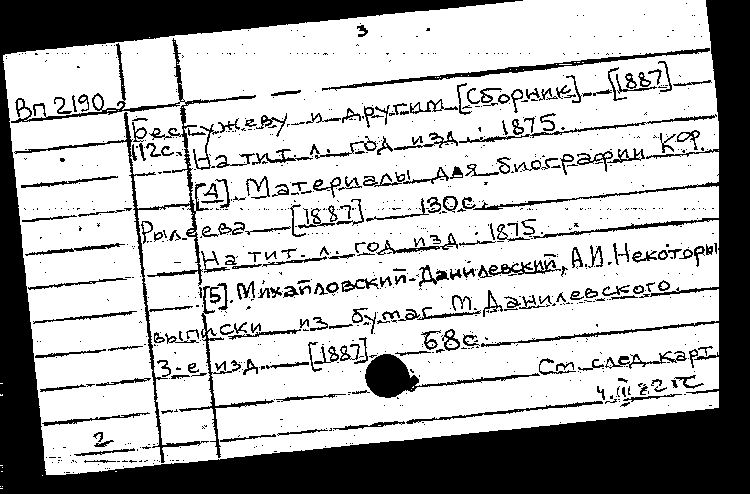 3
Вп 2190
Бестужеву и другим [Сборник] [1887]
112с. На тит. л. год изд.: 1875.
[4]. Материалы для биографии К.Ф.
Рылеева [1887] 130с.
На тит. л. год изд.: 1875.
[5]. Михайловский-Данилевский, А.И. Некоторы
выписки из бумаг М. Данилевского.
3-е изд. [1887] 68с.
См. след карт.
4.III 82
2